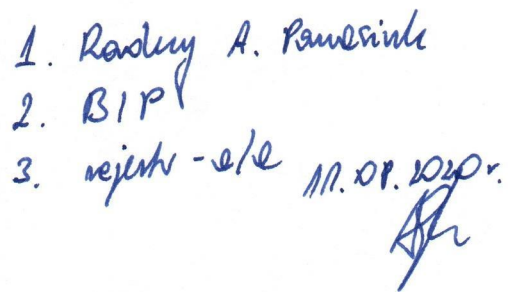 1. Radny A. Panasiuk
2. BIP
3. rejestr - a/a
11.08.2020r.